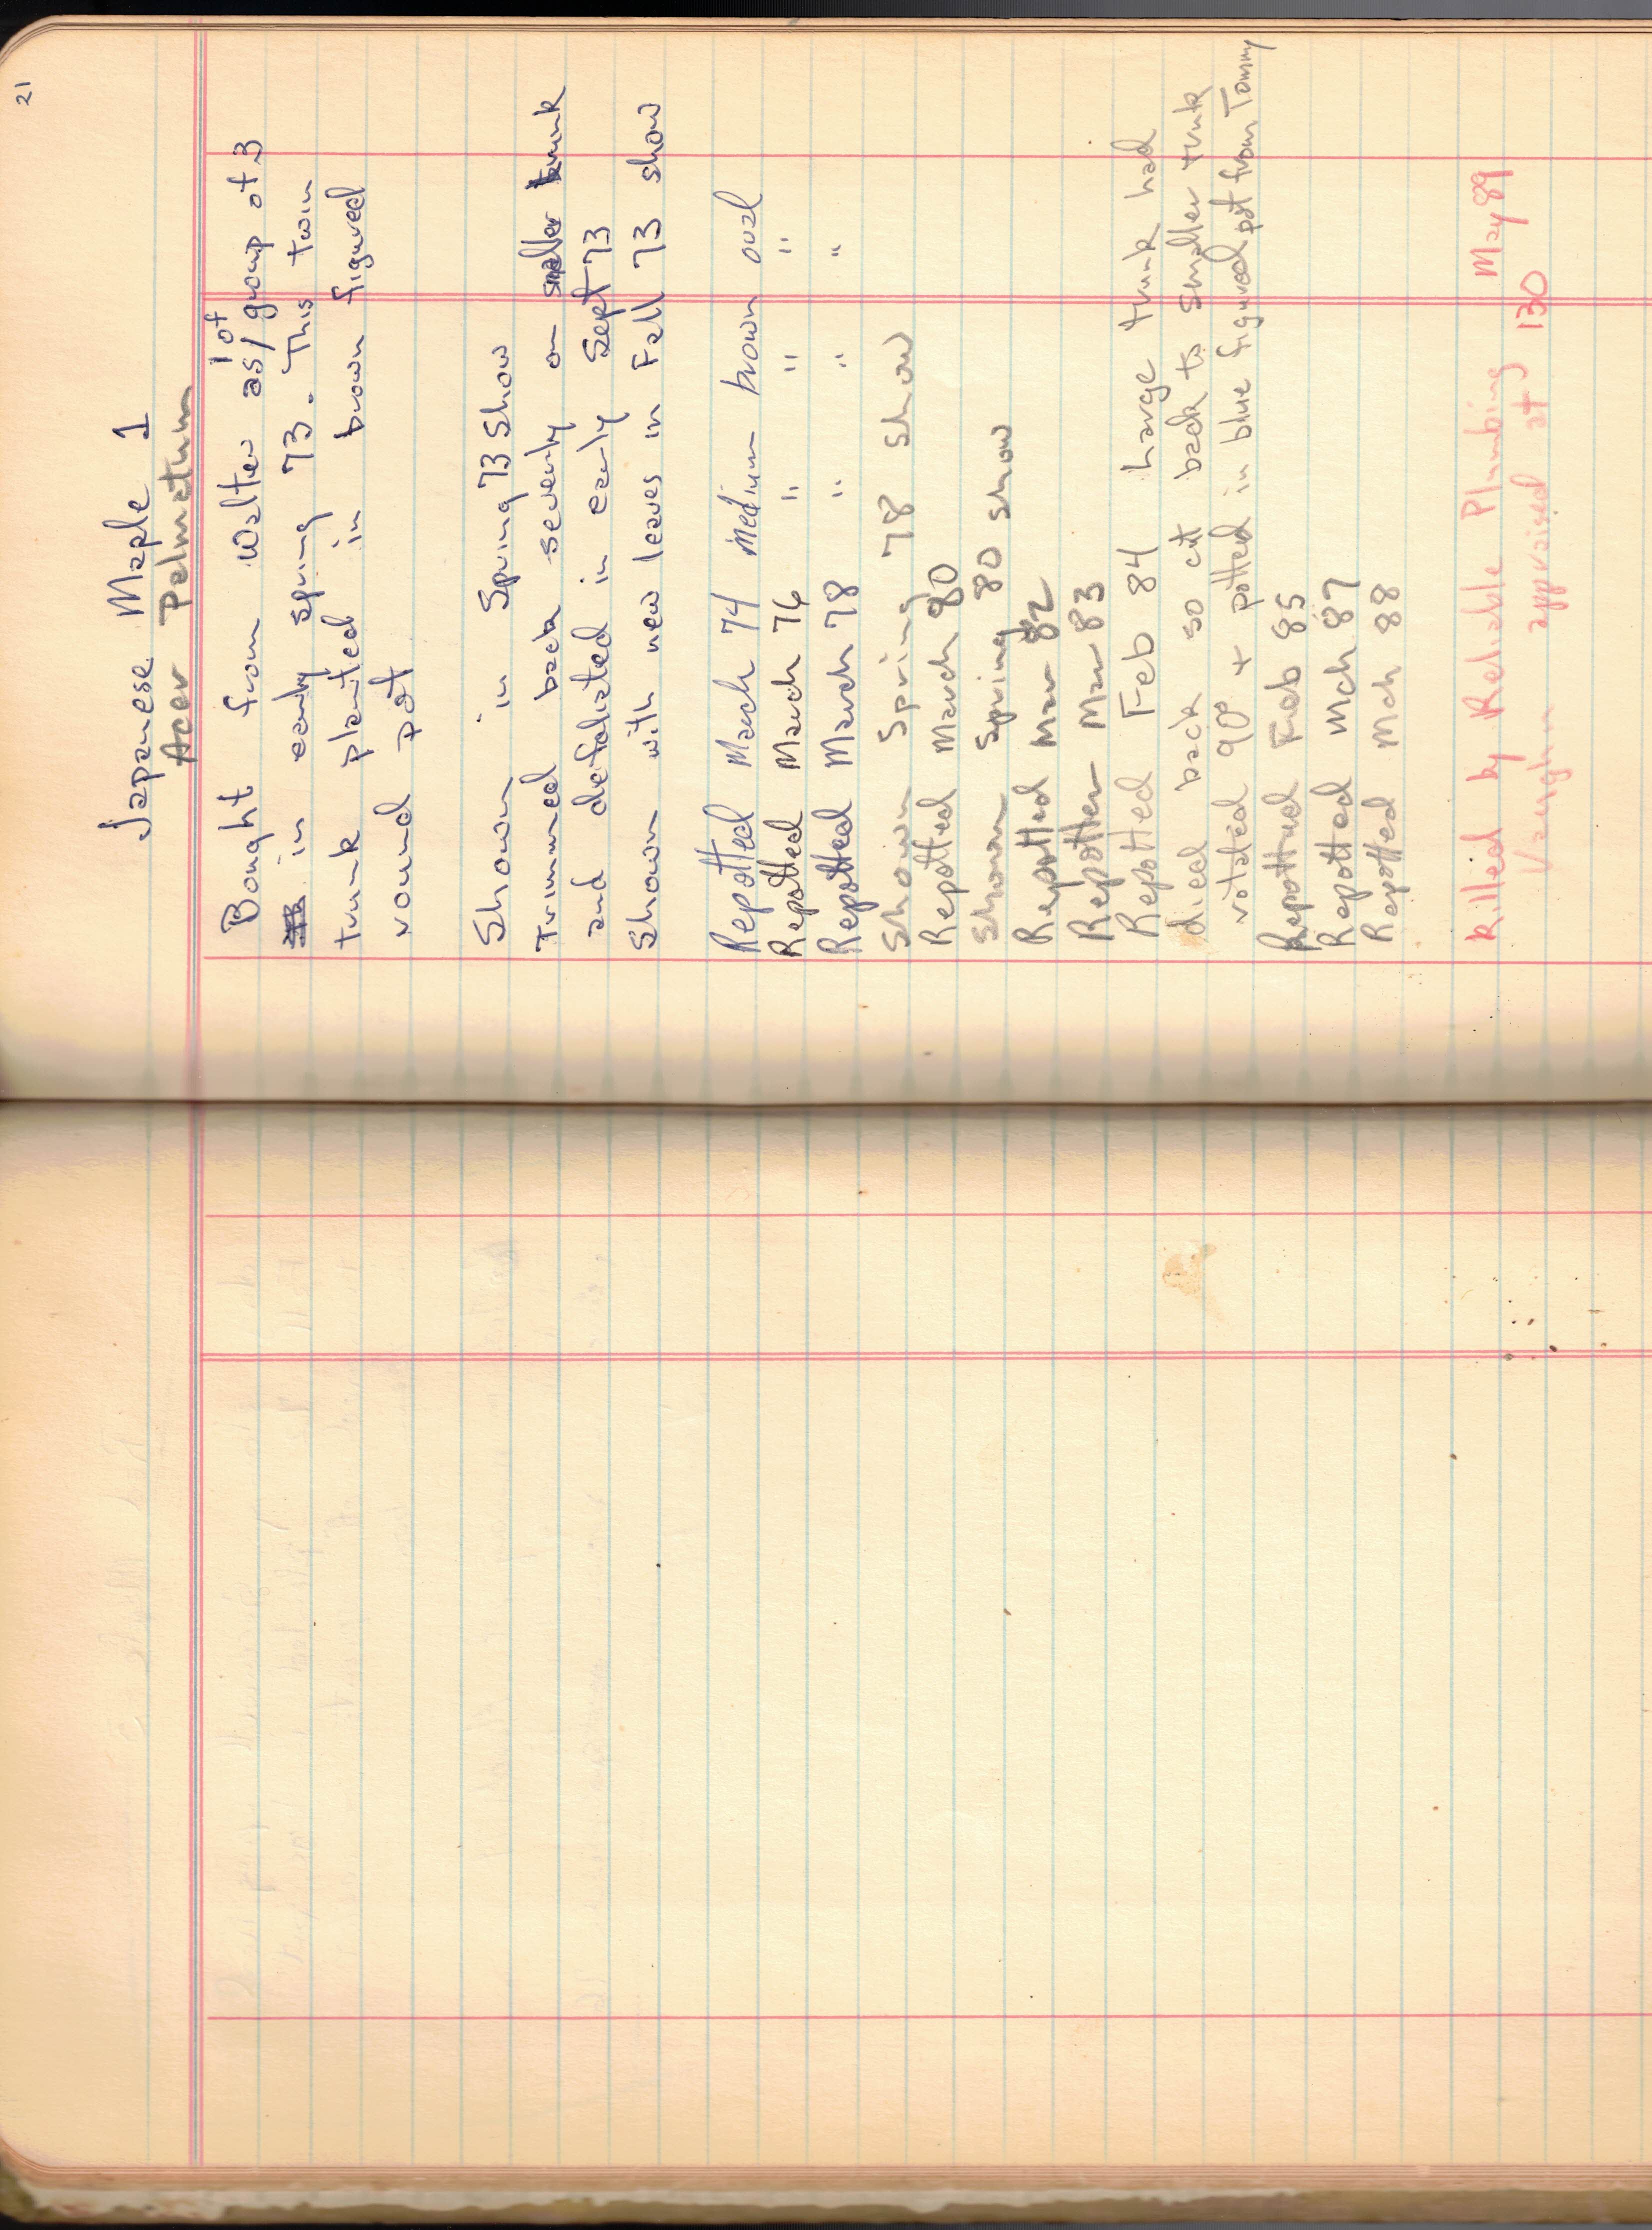 21
Japanese Maple 1
Acer Palmatum
Bought from Walter as 1 of group of 3
in early spring 73. This twin
trunk planted in brown figured
round pot
Shown in Spring 73 Show
Trimmed back severly on smaller trunk
and defoliated in early Sept 73
Shown with new leaves in Fall 73 show
Repotted March 74 medium brown oval
Repotted March 76 " " "
Repotted March 78 " " "
Shown Spring 78 Show
Repotted March 80
Shown Spring 80 show
Repotted Mar 82
Repotten Mar 83
Repotted Feb 84 Large trunk had
died back so cut back to smaller trunk
rotated 90° + potted in blue figured pot from Tommy
Repotted Feb 85
Repotted Mch 87
Repotted Mch 88
Killed by Reliable Plumbing May 89
Vaughn appraised at 130